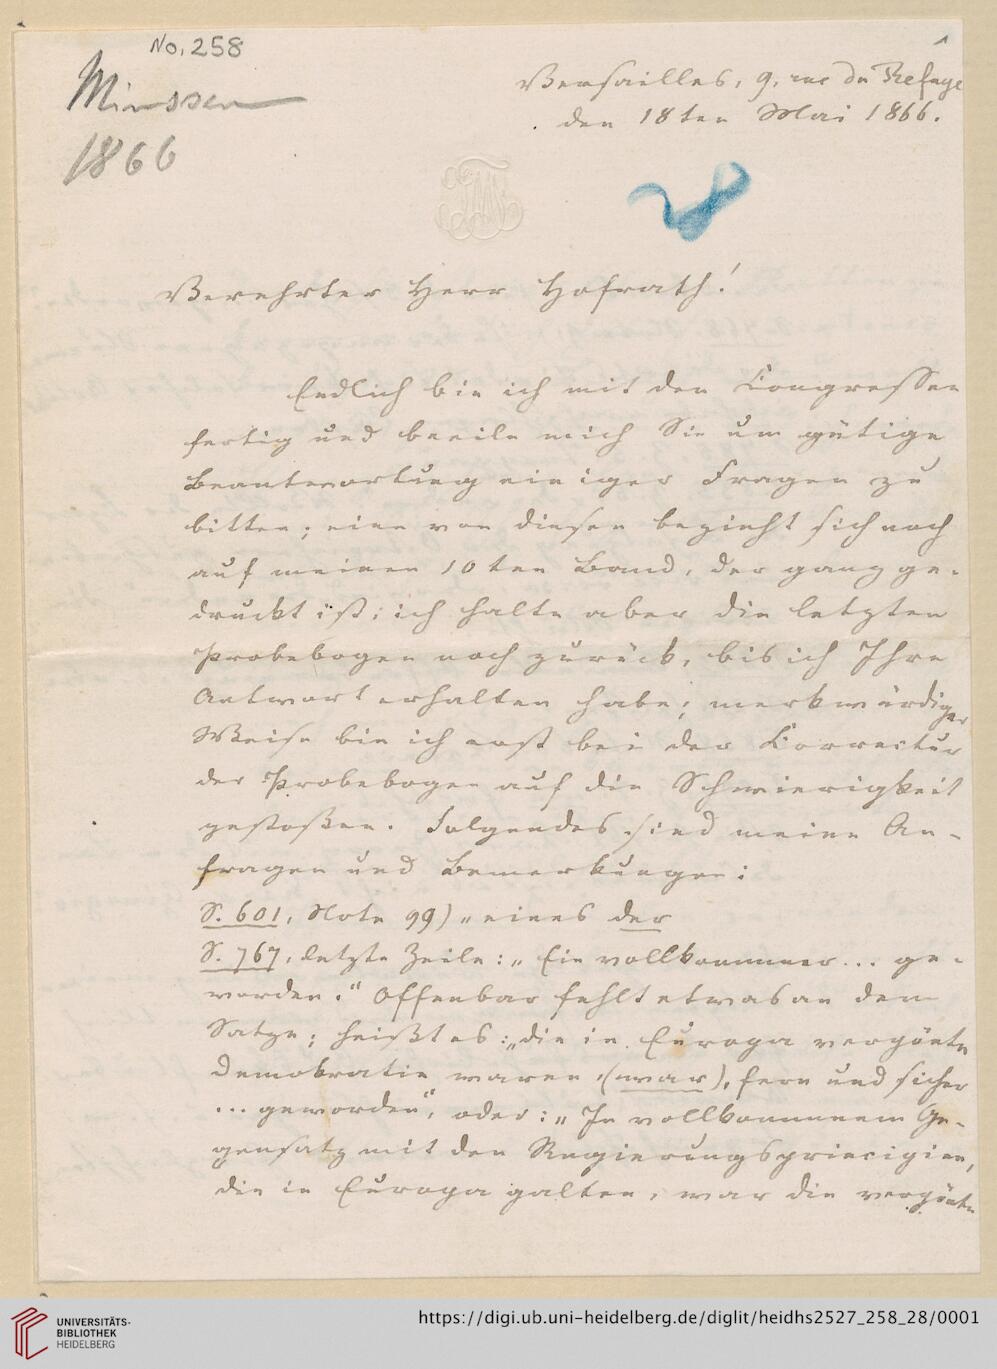 No. 258
Minssen
1866
1
Versailles, 9, rue du Refuge
den 18ten Mai 1866.
28
Verehrter Herr Hofrath!
Endlich bin ich mit den Congressen
fertig und beeile mich Sie um gütige
Beantwortung einiger Fragen zu
bitten; eine von diesen bezieht sich noch
auf meinen 10ten Band, der ganz ge-
druckt ist; ich halte aber die letzten
Probebogen noch zurück, bis ich Ihre
Antwort erhalten habe; merkwürdiger
Weise bin ich erst bei der Correctur
der Probebogen auf die Schwierigkeit
gestoßen. Folgendes sind meine An-
fragen und Bemerkungen:
S. 601, Note 99) „eines der
S. 767, letzte Zeile: „Ein vollkommner... ge-
worden." Offenbar fehlt etwas an dem
Satze; heißt es: „die in Europa verpönte
Demokratie waren (war), fern und sicher
... geworden", oder: „In vollkommnem Ge-
gensatz mit den Regierungsprincipien,
die in Europa galten, war die verpönte
UNIVERSITÄTS-
BIBLIOTHEK
HEIDELBERG
https://digi.ub.uni-heidelberg.de/diglit/heidhs2527_258_28/0001